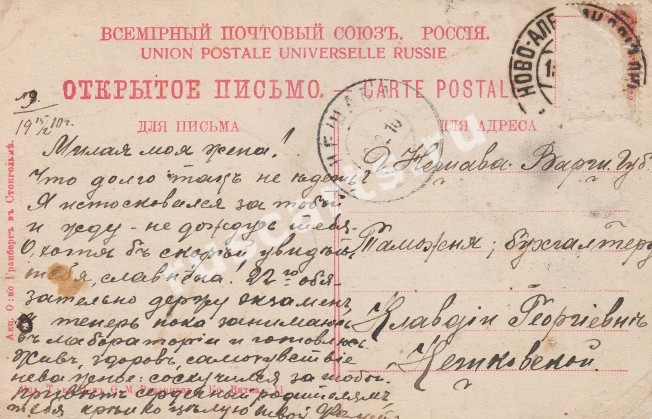 ВСЕМІРНЫЙ ПОЧТОВЫЙ СОЮЗЪ. РОССІЯ.
UNION POSTALE UNIVERSELLE RUSSIE
ОТКРЫТОЕ ПИСЬМО. — CARTE POSTALE
ДЛЯ ПИСЬМА
ДЛЯ АДРЕСА
НОВО-АЛЕ
НЕШАВА
10
№ 9.
19 15/2 10 г.
Милая моя жена!
Что долго такъ не едешь
Я истосковался за тобой
и жду - не дождусь тебя
О, хотя бъ скорѣй увидѣть
тебя, славная! 22го обя-
зательно держу экзаменъ
А теперь пока занимаюсь
въ лабораторіи и готовлюсь
Живъ, здоровъ, самочувствіе
неважное: соскучился за тобой.
Привѣтъ сердечный родителямъ
Тебя крѣпко цѣлую твой
Г. Нешава. Варш. Губ.
Таможня, бухгалтеру
Клавдіи Георгіевнѣ
Акц. О-во Гранбергъ въ Стокгольмѣ.
ruscards.ru